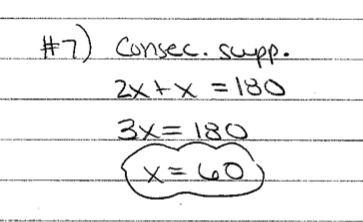 #7) Consec. supp.
2x+x = 180
3x = 180
x = 60